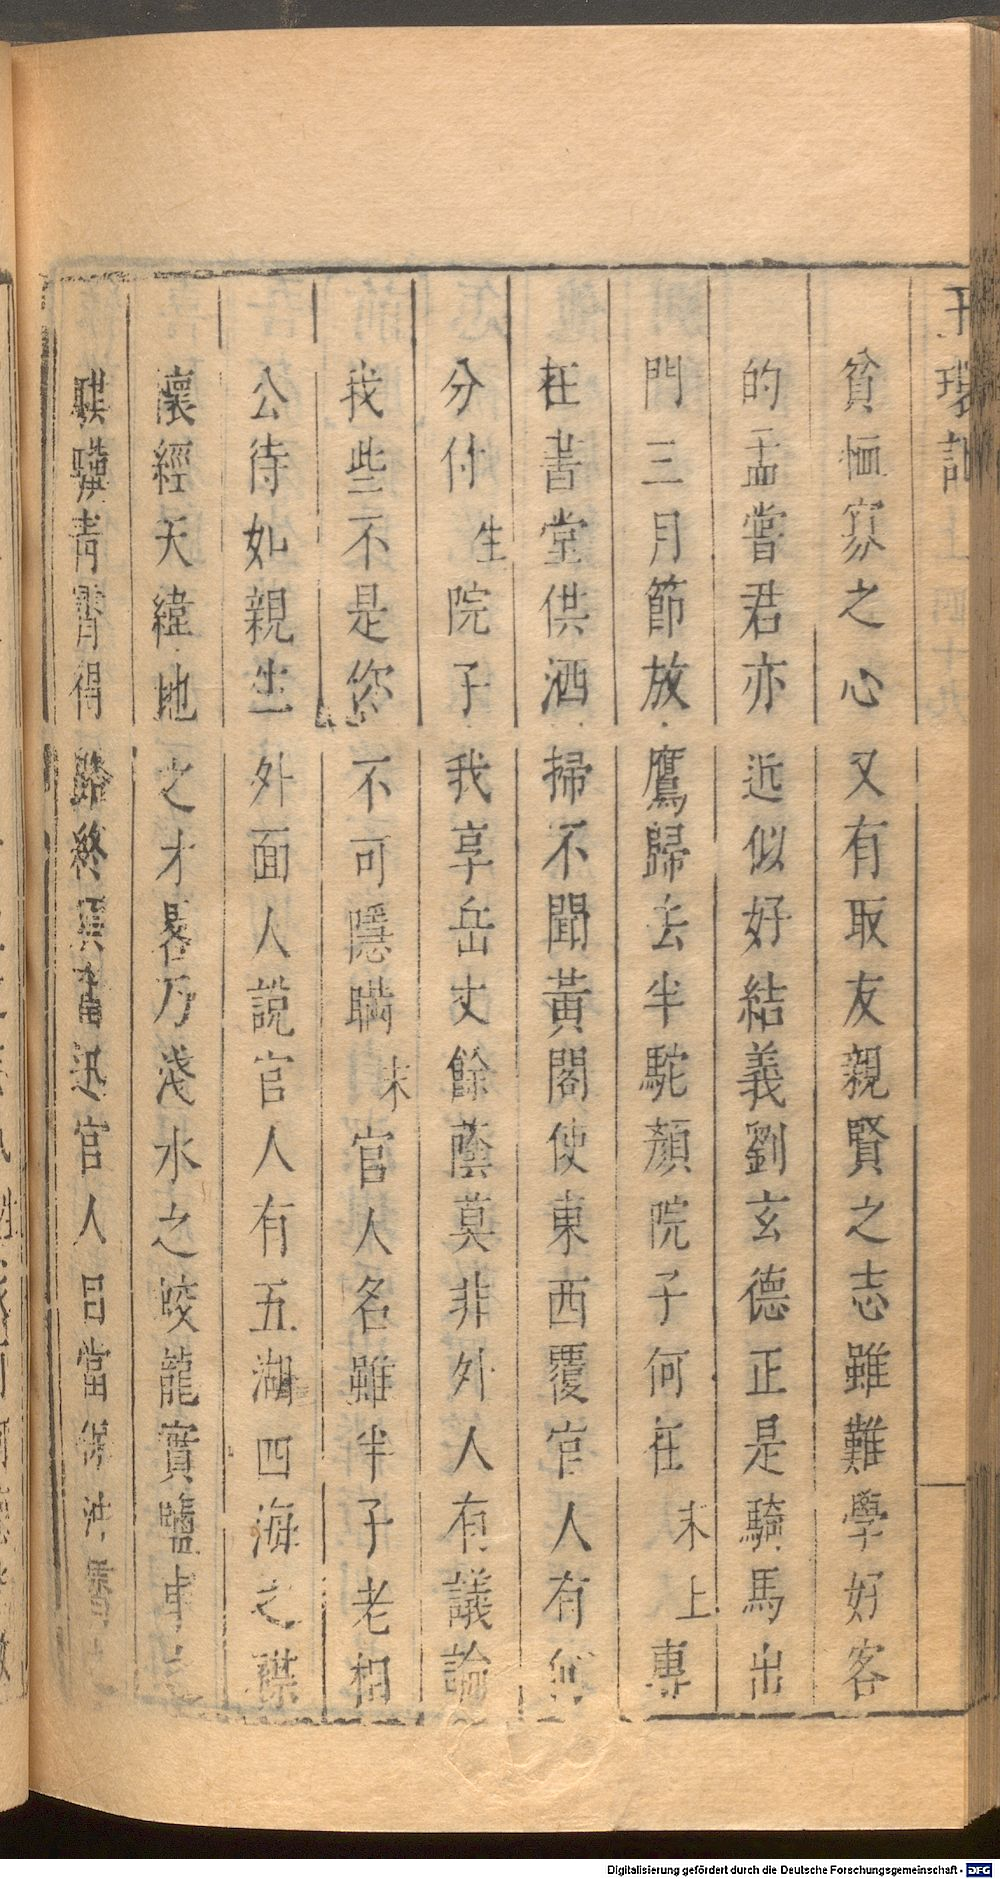 玉環記
貧恤寡之心又有取友親賢之志雖難學好客
的孟嘗君亦近似好結義劉玄德正是騎馬出
門三月節放鷹歸去半駝顏院子何在末上專
在書堂供洒掃不聞黃閣使東西覆官人有何
分付生院子我享岳丈餘蔭莫非外人有議論
我些不是你不可隱瞞末官人名雖半子老相
公待如親生外面人說官人有五湖四海之
懷經天緯地之才畧乃淺水之蛟龍實鹽車之
騏驥青霄得路終須奮迅官人呂當
Digitalisierung gefördert durch die Deutsche Forschungsgemeinschaft - DFG